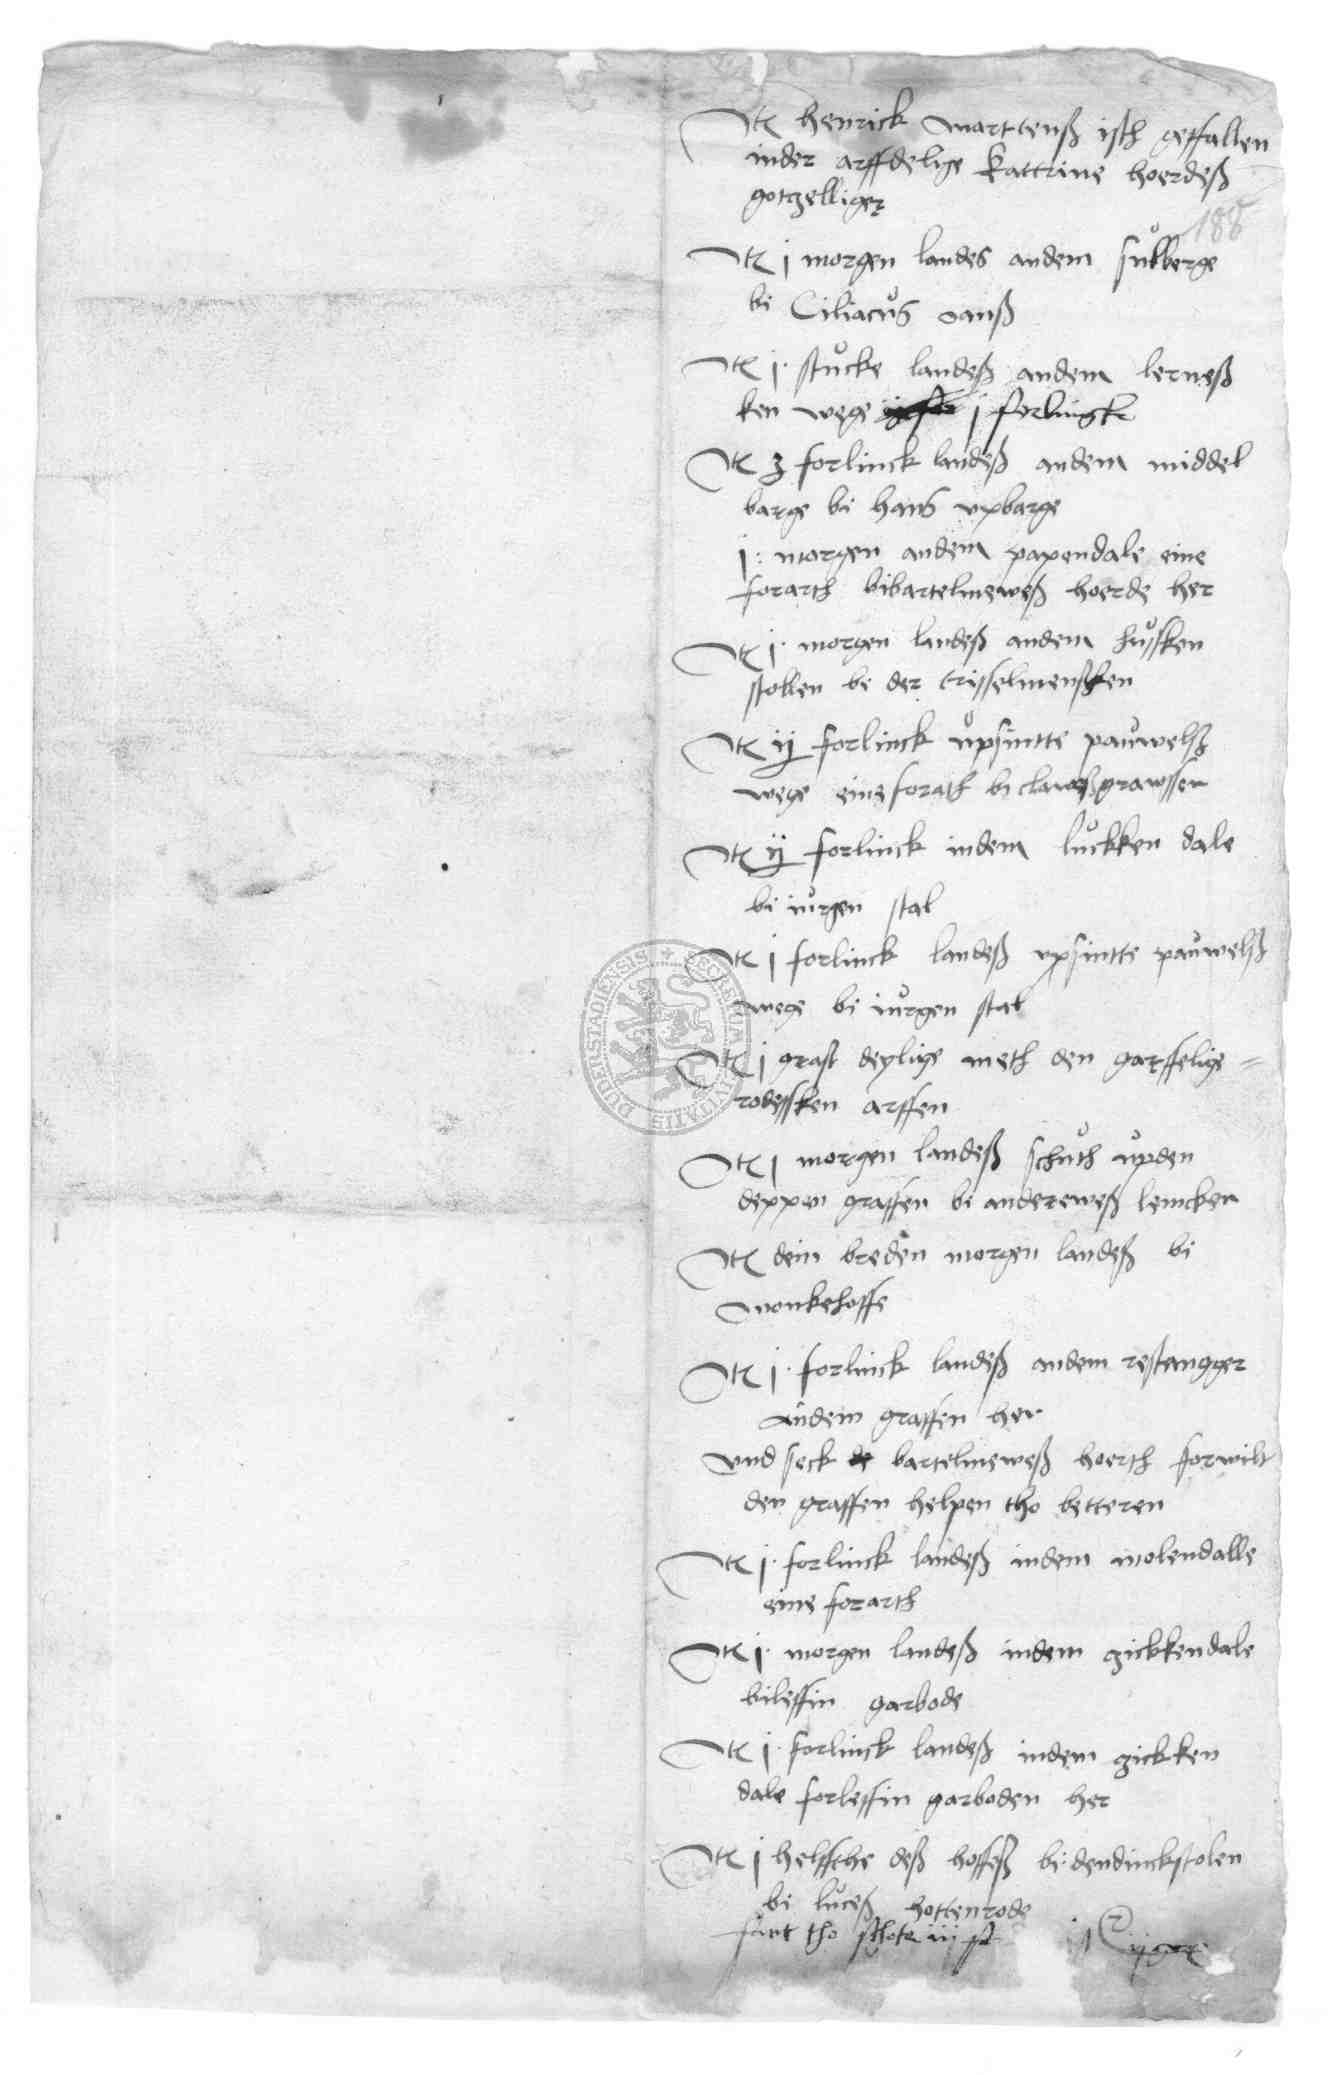 It henrick marttenß isth geffallen
inder arffdelige kattrine hoerdeß
gotzelliger
188
It j morgen landes andem sulberge
bi Ciliacus vanß
It j stucke landeß andem lerneß
ken wege j forlingk
It 3 forlinck landeß andem middel
barge bi hans upbarge
j morgen andem papendale eine
forarth bibartelmeweß hoerde her
It j morgen landeß andem hussken
stollen bi der trisselmenschen
It ij forlinck upsintte pauwelß
wege eine forath bi claweß grawssen
It ij forlinck indem luckken dale
bi iurgen stal
It j forlinck landeß upsintte pauwelß
wege bi iurgen stal
It j graft deylige meth den garffelige=
rodessken arffen
It j morgen landeß schuth upden
deppen graffen bi andereweß lencken
It dem breden morgen landeß bi
monkehoffe
It j forlinck landeß andem restangger
andem graffen her
und seck bartelmeweß hoerth forwilt
den graffen helpen tho betteren
It j forlinck landeß indem molendalle
eine forarth
It j morgen landeß indem zickkendale
bileffin garbode
It j forlinck landeß indem zickken
dale forleffin garboden her
It j helffthe deß hoffeß bi dendinckstolen
bi luceß hottenrode
tho schote iij
SECRETUM CIVITATIS DUDERSTADIENSIS